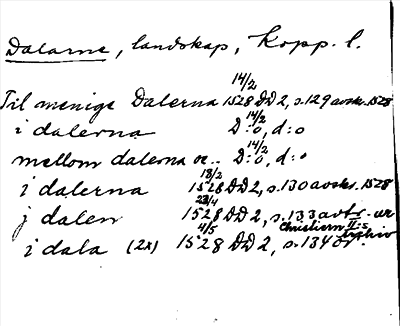 Dalarne, landskap, Kopp. l.
Til menige Dalerna 14/2 1528 DD2, s. 129 avskr. 1528
i dalerna 14/2 D:o, d:o
mellom dalerna oc.. 14/2 D:o, d:o
i dalerna 18/2 1528 DD2, s. 130 avskr. 1528
j dalen 23/4 1528 DD2, s. 133 avtr. ur Christiern II:s arkiv
i dala (2x) 4/5 1528 DD2, s. 134 or.